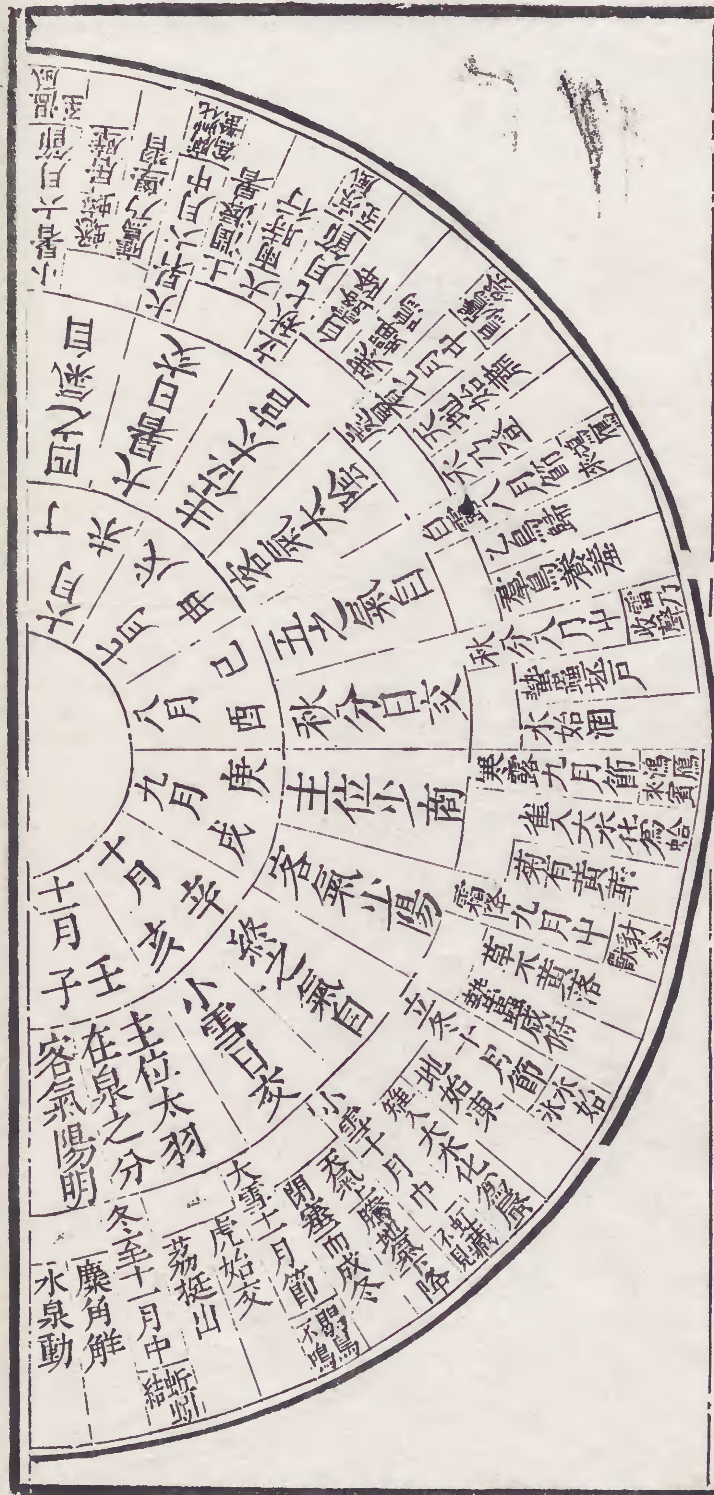 六月
丁未
七月
戊申
八月
己酉
九月
庚戌
十月
辛亥
十一月
壬子
四之氣自
大暑日交
主位太宮
客氣太陰
五之氣自
秋分日交
主位少商
客氣少陽
終之氣自
小雪日交
主位太羽
在泉之分
客氣陽明
小暑六月節
溫風至
蟋蟀居壁
鷹乃學習
大暑六月中
土潤溽暑
大雨時行
立秋七月節
涼風至
白露降
寒蟬鳴
處暑七月中
鷹祭鳥
天地始肅
禾乃登
白露八月節
鴻鴈來
乙鳥歸
羣鳥養羞
秋分八月中
雷乃收聲
蟄蟲坯戶
水始涸
寒露九月節
鴻鴈來賓
雀入大水化爲蛤
菊有黃華
霜降九月中
豺祭獸
草木黃落
蟄蟲咸俯
立冬十月節
水始冰
地始凍
雉入大水化爲蜃
小雪十月中
虹藏不見
天氣上騰地氣下降
閉塞而成冬
大雪十一月節
鶡鳥不鳴
虎始交
荔挺出
冬至十一月中
蚯蚓結
麋角解
水泉動